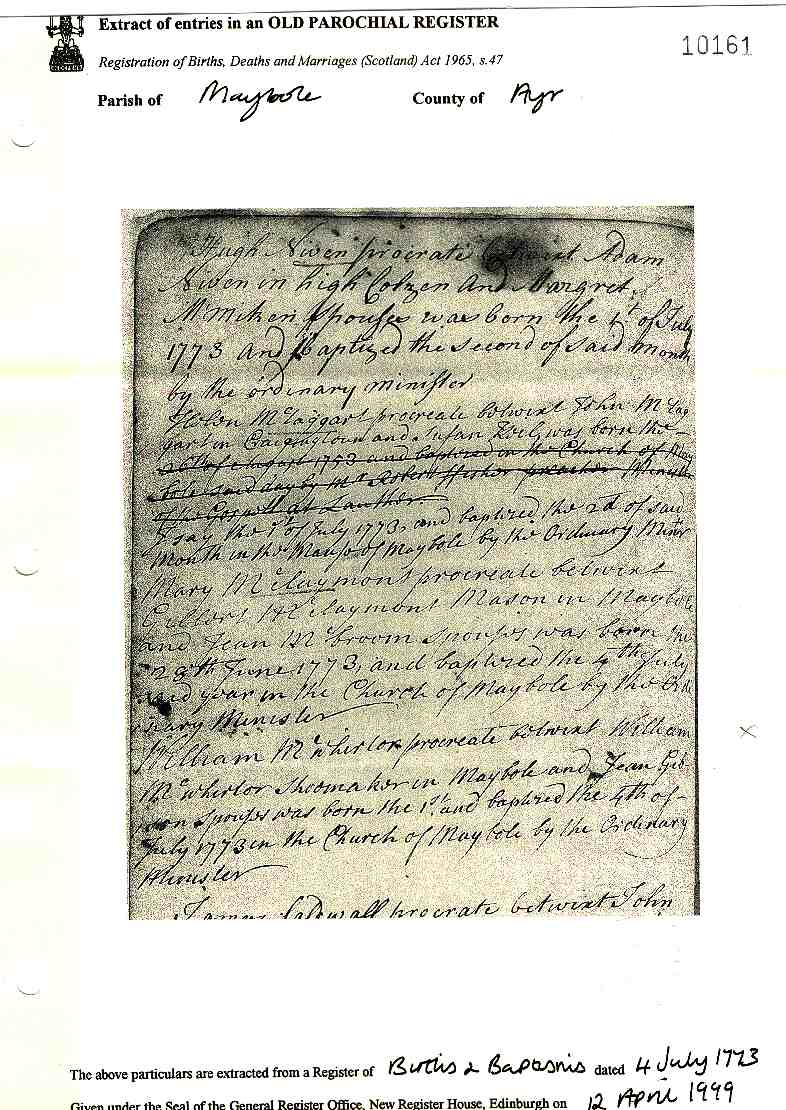 Extract of entries in an OLD PAROCHIAL REGISTER
10161
Registration of Births, Deaths and Marriages (Scotland) Act 1965, s.47
Parish of Maybole County of Ayr
Hugh Niven procrate betwixt Adam
Niven in high Colzen And Margret
Mcmiken spouses was born the 1t of July
1773 And Baptized the second of said month
by the ordinary minister
Helen McTaggart procreate betwixt John McTag
gart in and Susan was born the
26th of August 1773 and baptized in the Church of May
bole said day by Mr Robert Fisher preacher Minister
of the Gospel at
I say the 1st of July 1773, and baptized the 2d of said
Month in the Manse of Maybole by the Ordinary Minr
Mary McClaymont procreate betwixt
McClaymont Mason in Maybole
and Jean McBroom Spouses was born the
28th June 1773, and baptized the 4th July
said year in the Church of Maybole by the Ordi
nary Minister
William McWhirtor procreate betwixt William
McWhirtor Shoemaker in Maybole and Jean Gib
son Spouses was born the 1st and baptized the 4th of
July 1773 in the Church of Maybole by the Ordinary
Minister
James Caldwall procrate betwixt John
The above particulars are extracted from a Register of Births & Baptisms dated 4 July 1773
Given under the Seal of the General Register Office, New Register House, Edinburgh on 12 April 1999